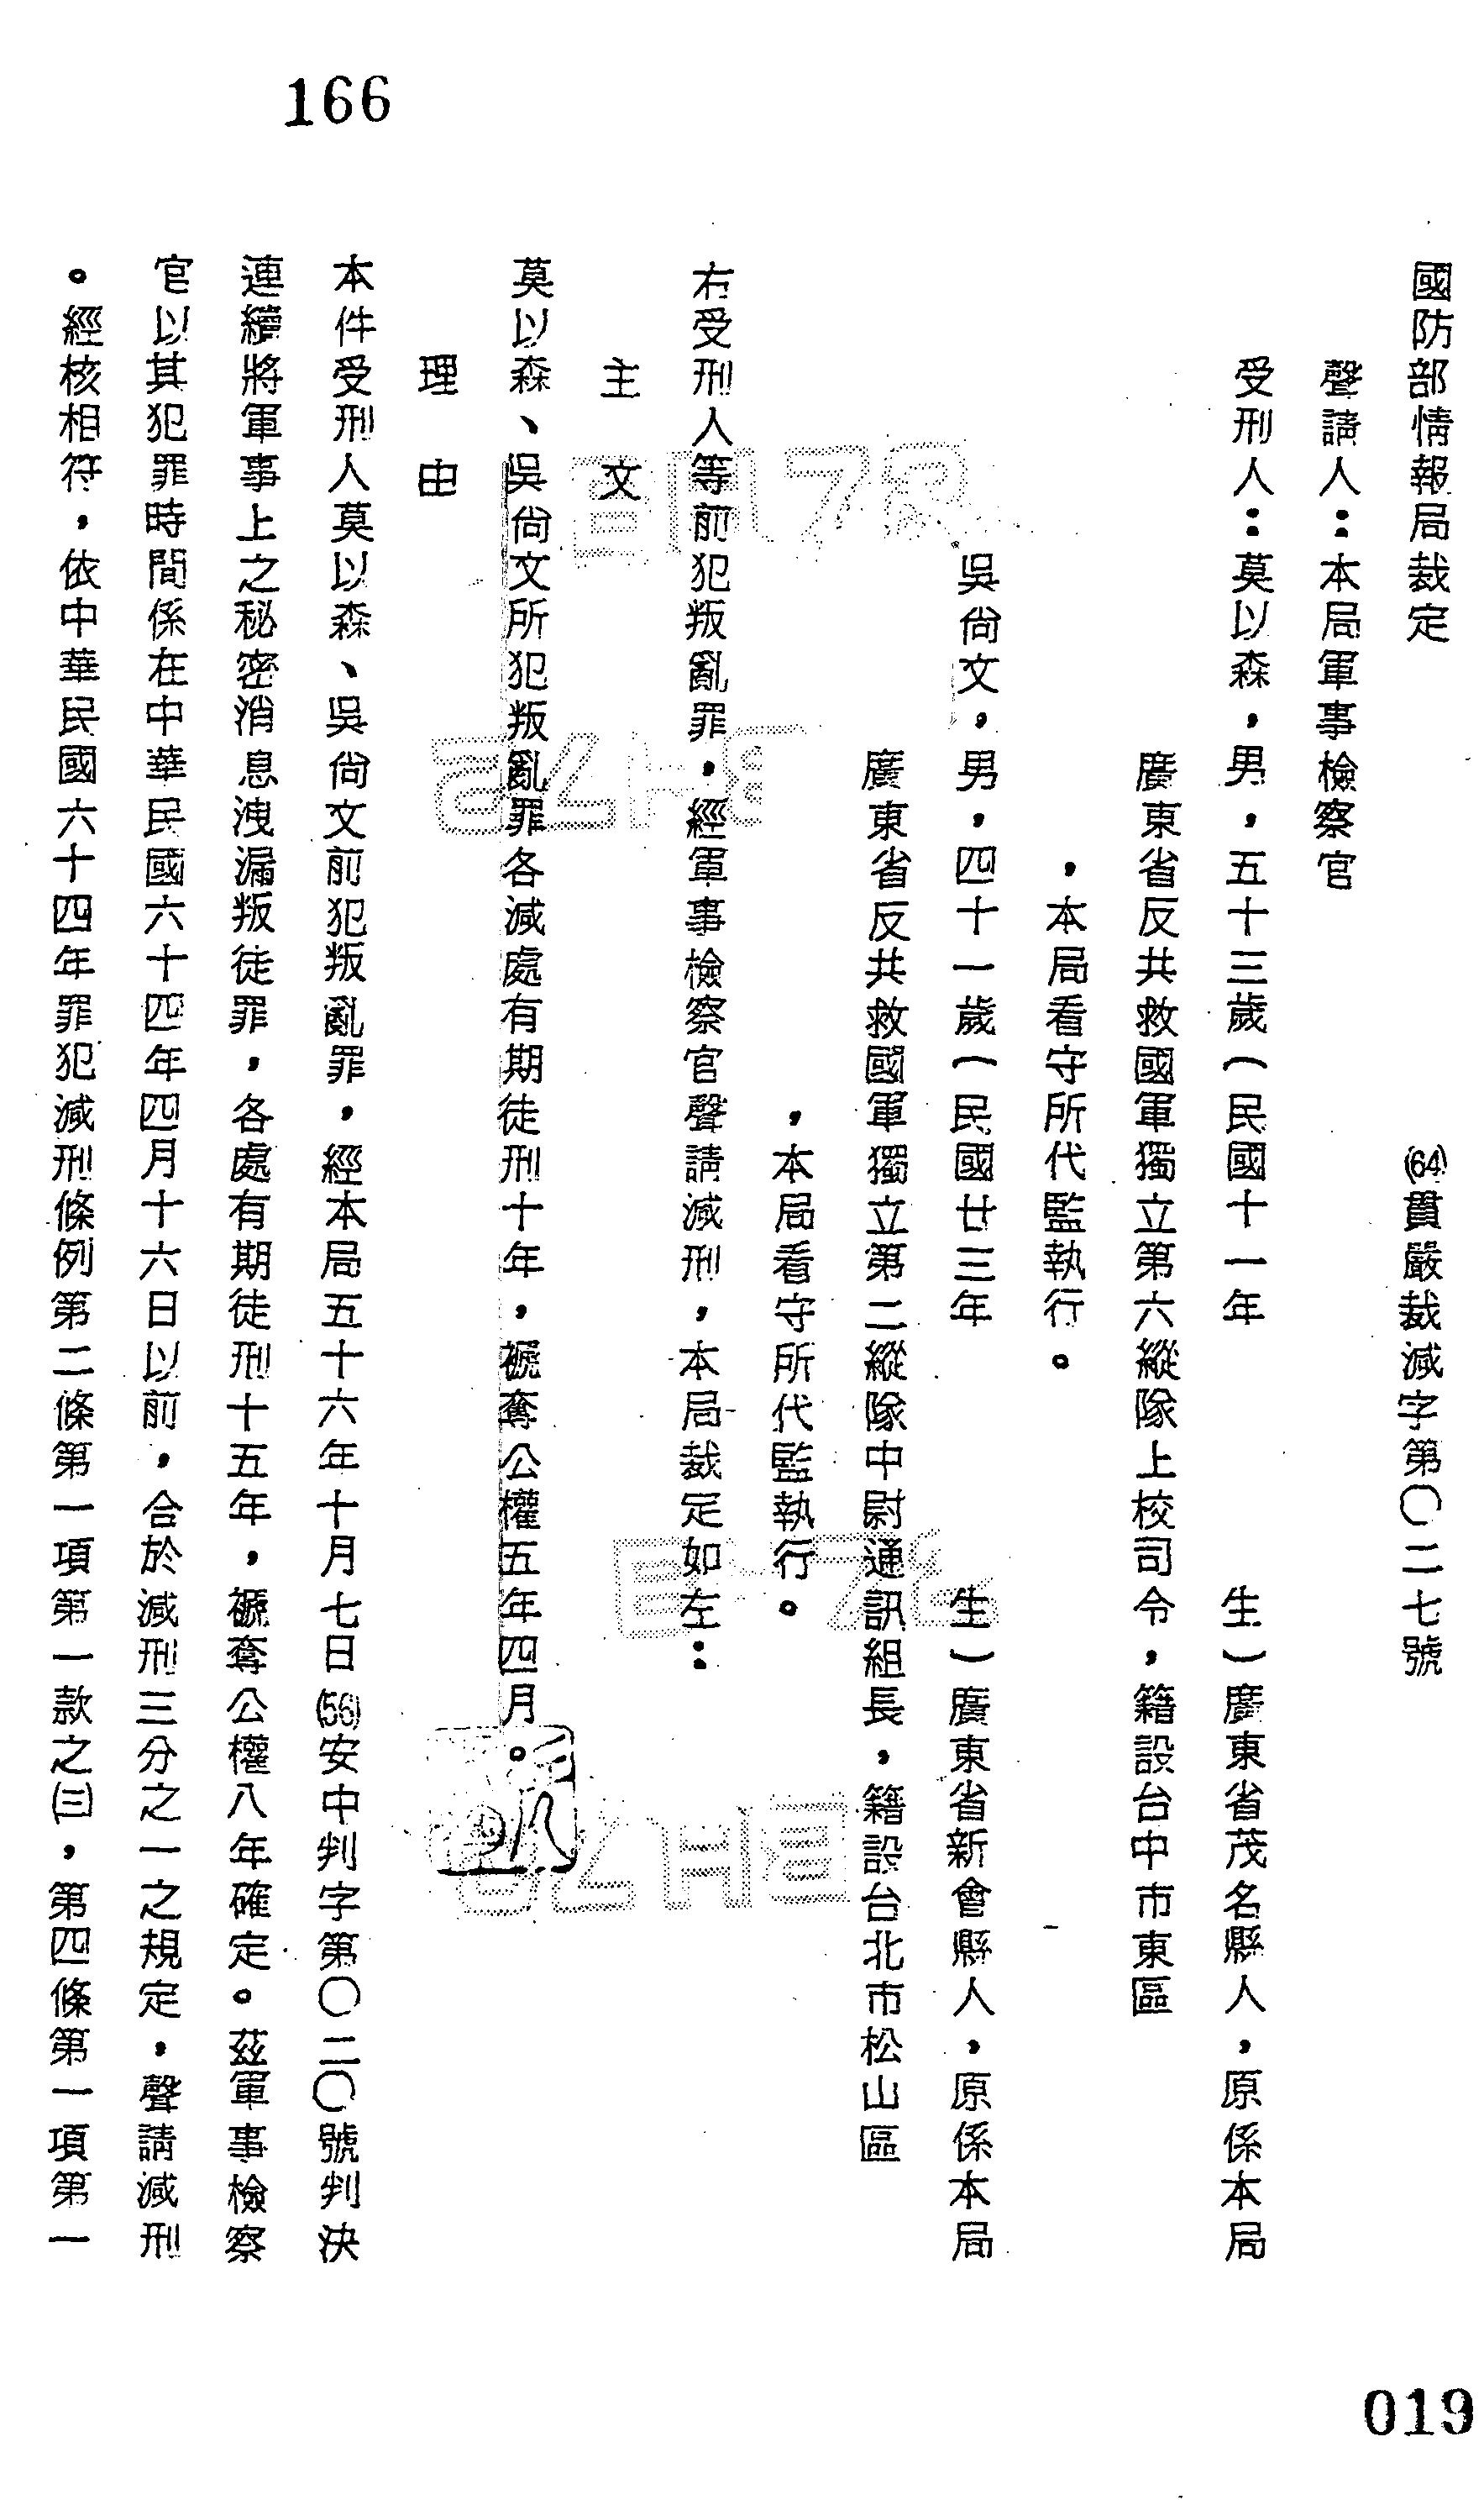 166
國防部情報局裁定 (64)貫嚴裁減字第〇二七號
聲請人：本局軍事檢察官
受刑人：莫以森，男，五十三歲（民國十一年 生）廣東省茂名縣人，原係本局
廣東省反共救國軍獨立第六縱隊上校司令，籍設台中市東區
，本局看守所代監執行。
吳尙文，男，四十一歲（民國廿三年 生）廣東省新會縣人，原係本局
廣東省反共救國軍獨立第二縱隊中尉通訊組長，籍設台北市松山區
，本局看守所代監執行。
右受刑人等前犯叛亂罪，經軍事檢察官聲請減刑，本局裁定如左：
主文
莫以森、吳尙文所犯叛亂罪各減處有期徒刑十年，褫奪公權五年四月。
理由
本件受刑人莫以森、吳尙文前犯叛亂罪，經本局五十六年十月七日(56)安中判字第〇二〇號判決
連續將軍事上之秘密消息洩漏叛徒罪，各處有期徒刑十五年，褫奪公權八年確定。茲軍事檢察
官以其犯罪時間係在中華民國六十四年四月十六日以前，合於減刑三分之一之規定，聲請減刑
。經核相符，依中華民國六十四年罪犯減刑條例第二條第一項第一款之㈢，第四條第一項第一
019